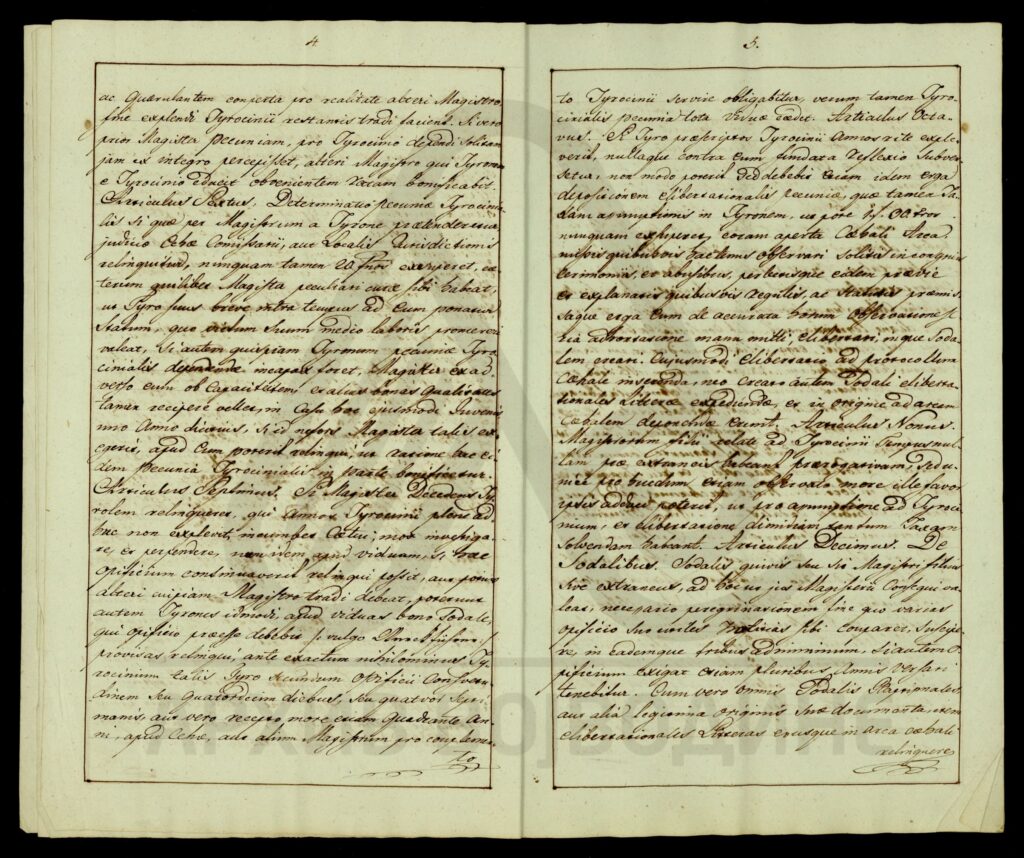 4.
ac Quærulantem conperta pro realitate alteri Magistro
fine explendi Tyrocinii restantis tradi faciens. Si vero
prior Magister Pecuniam, pro Tyrocinio dependi solitam
jam ex integro percepisset, alteri Magistro qui Tyronem
e Tyrocinio educet obvenientem ratam bonificabit.
Articulus Sextus. Determinatio pecuniæ Tyrocinia-
lis si quæ per Magistrum a Tyrone prætenderetur
judicio Cehæ Comissarii, aut Localis Jurisdictionis
relinquitur, nunquam tamen 20 fnos exsuperet, cæ
terum quilibet Magister peculiari curæ sibi habeat,
ut Tyro suus breve intra tempus ad Eum ponatur
statum, quo victum suum medio laboris promereri
valeat, Si autem quispiam Tyronum pecuniæ Tyro
cinialis dependendæ incapax foret, Magister ex ad-
verso eum ob Capacitatem et alias bonas Qualitates
tamen recipere vellet, in Casu hoc ejusmodi Juvenis
uno Anno diutius, si id nefors Magister talis ex-
geret, apud Eum poterit relinqui, ut ratione hac ei-
dem Pecunia Tyrocinialis in parte bonificetur.
Articulus Septimus. Si Magister Decedens Ty-
rolem relinqueret, qui Annos Tyrocinii plene ad-
huc non explevit, incumbet Cætui, mox investiga-
re, et perpendere, num idem apud viduam, si hæc
opificium continuaverit relinqui possit, aut potius
alteri cuipiam Magistro tradi debeat, poterunt
autem Tyrones idmodi, apud Viduas bono Sodale,
qui opificio præesse debebit
provisas relinqui, ante exactum nihilominus Ty-
rocinium talis Tyro secundum Opificii Consvetu-
dinem seu Quatordecim diebus, seu quatuor Septi
manis, aut vero recepto more etiam Quadrante An-
ni, apud Cehæ, aut alium Magistrum pro compleme-
to
5.
to Tyrocinii servire obligabitur, verum tamen Tyro-
cinialis pecunia tota Viduæ cedet. Articulus Octa-
vus. Si Tyro præscriptos Tyrocinii Annos rite exple-
verit, nullaque contra eum fundata reflexio Subver
setur, non modo poterit sed debebit etiam idem erga
depositionem elibertationalis pecuniæ, quæ tamen Ta-
xam assumptionis in Tyronem, ut pote
nunquam exsuperet, coram aperta Cæhali Arca
missis quibusvis hactenus observari solitis incongruis
cerimoniis, et abusibus, perlectisque eidem prævie
et explanatis quibusvis regulis, ac statutis præmis-
saque erga Eum de accurata horum observatione se-
ria adhortatione manu mitti, elibertari, inque Soda-
lem creari. Cujusmodi elibertatio ad protocollum
Cæhale inserenda, neo creato autem Sodali eliberta-
tionales Litteræ expediendæ, et in origine ad arcam
Cæhalem deponendæ erunt. Articulus Nonus.
Magistrorum filii relate ad Tyrocinii tempus nul
lam præ extraneis habeant prærogativam, sed u-
nice pro quædam etiam observato more ille favor
ipsis adduci poterit, ut pro assumptione ad Tyroci-
nium, et elibertatione dimidiam tantum Taxam
solvendam habeant. Articulus Decimus. De
Sodalibus. Sodalis quivis seu sit Magistri filius
sive extraneus, ad hoc ut jus Magisterii Consequi va
leat, necessario peregrinationem fine quo varias
opificio suo utiles notitias sibi comparet, suscipe-
re, in eademque tribus ad minimum, si autem O-
pificium exigat etiam pluribus Annis versari
tenebitur. Cum vero omnis Sodalis Baptismales
aut alia legitima originis suæ documenta, item
elibertationales Litteras ejusque in arca Cæhali
relinquere